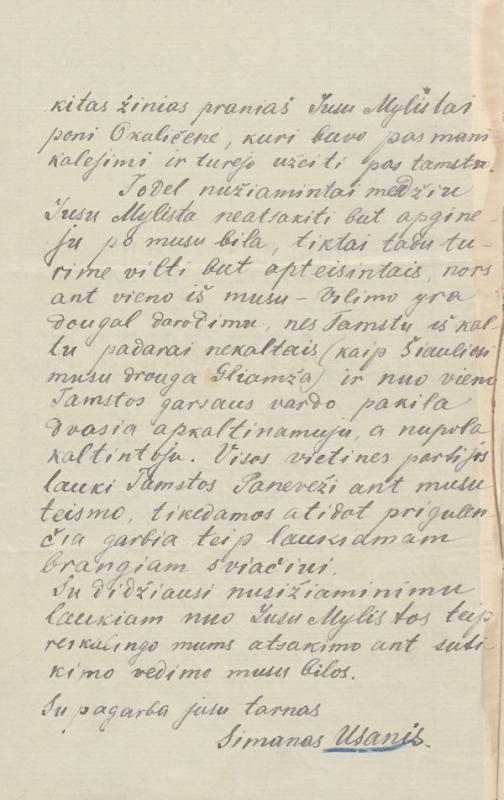 kitas žinias praniaš Jusu Mylistai
poni Okuličene, kuri buvo pas mani
kalejimi ir turejo užeiti pas tamsta.
Todel nužiamintai medžiu
Jusu Mylista neatsakiti but apgine-
ju po musu bila, tiktai tadu tu-
rime vilti but apteisintais, nors
ant vieno iš musu - Vilimo yra
dougal darodimu, nes Tamstu iš kal-
tu padarai nekaltais (kaip Šiauliosi
musu drouga Gliamža) ir nuo vieno
Tamstos garsaus vardo pakila
dvasia apkaltinamuju, a nupola
kaltintoju. Visos vietines partijos
lauki Tamstos Panevėži ant musu
teismo, tikedamos atidot prigulen-
čia garbia teip laukiamam
brangiam sviačiui.
Su didžiausi nusižiaminimu
laukiam nuo Jusu Mylistos teip
reikalingo mums atsakimo ant suti-
kimo vedimo musu bilos.
Su pagarba jusu tarnas
Simanas Usanis.